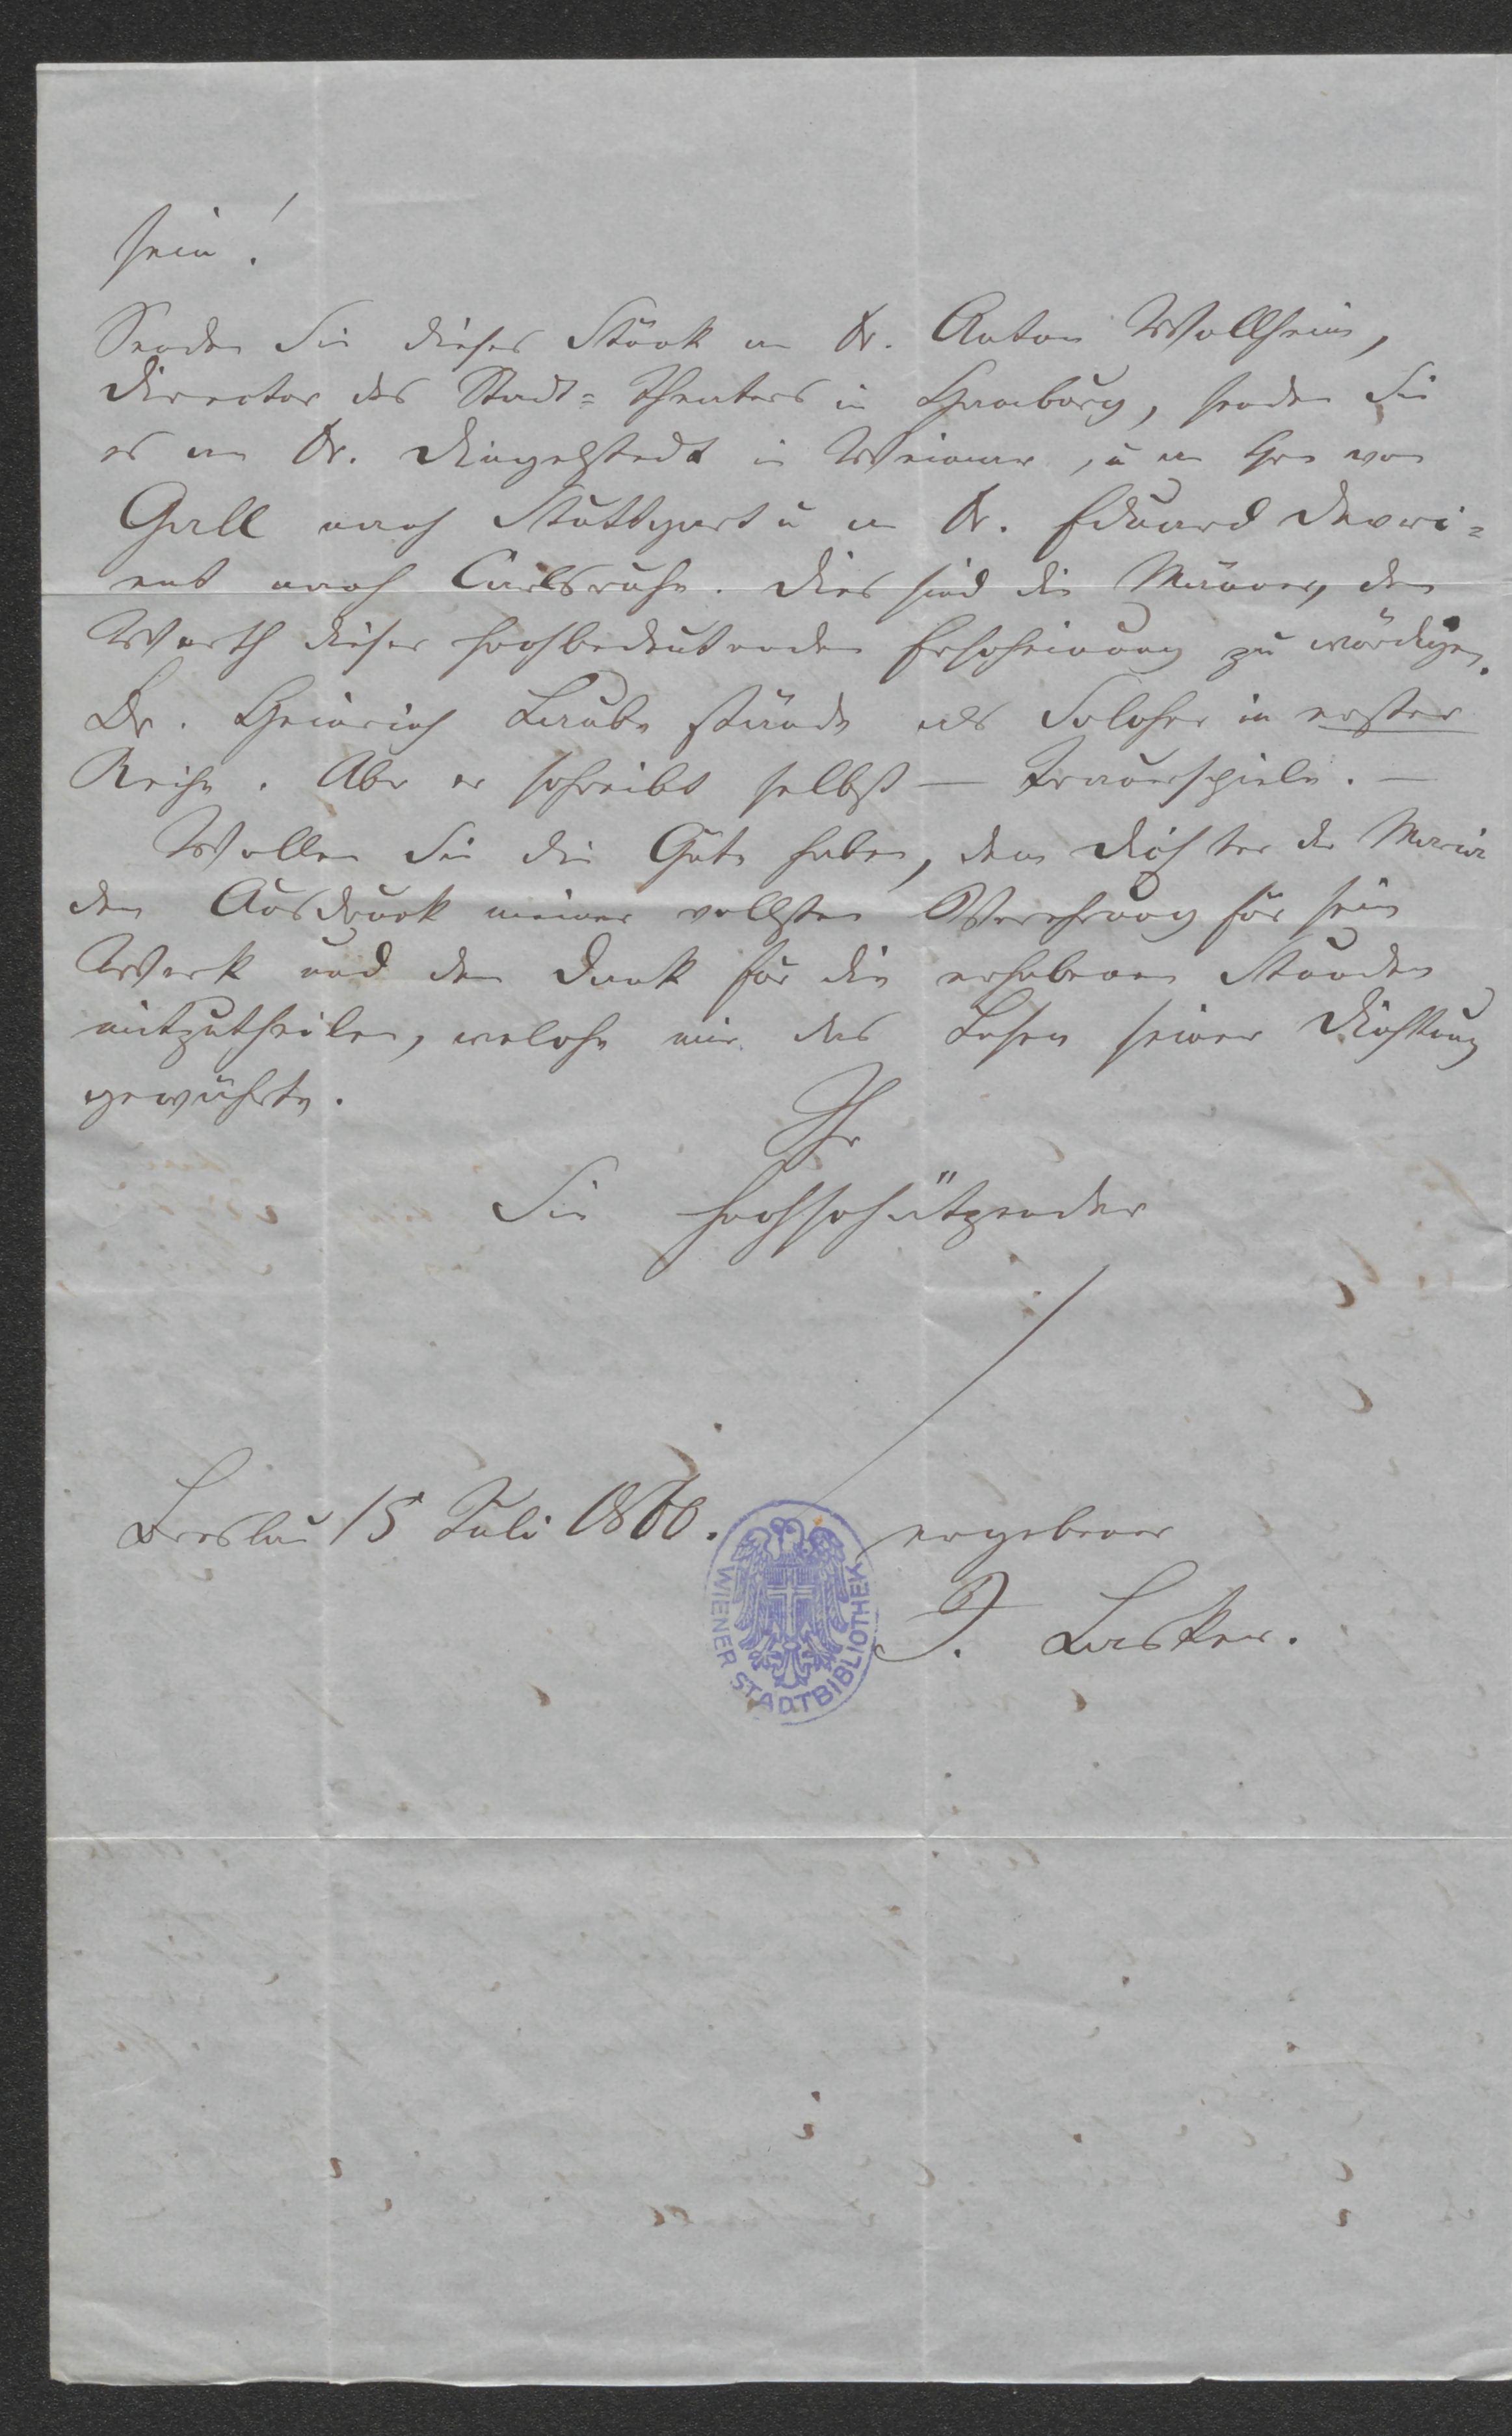 sein!
Senden Sie dieses Stück an Dr. Anton Wollheim,
Director des Stadt=Theaters in Hamburg, senden Sie
es an Dr. Dingelstedt in Weimar, u an Hrn von
Gall nach Stuttgart u an Dr. Eduard Devri=
ent nach Carlsruhe. Dies sind die Männer, den
Werth dieser hochbedeutenden Erscheinung zu würdigen.
Dr. Heinrich Laube stände als Solcher in erster
Reihe. Aber er schreibt selbst — Trauerspiele. —
Wollen Sie die Güte haben, dem Dichter der Maria
den Ausdruck meiner vollsten Verehrung für sein
Werk und den Dank für die erhabenen Stunden
mitzutheilen, welche mir das Lesen seiner Dichtung
gewährte.
Ihr
Sie hochschätzender
ergebener
Breslau 15 Juli 1860.
J. Lasker.
WIENER STADTBIBLIOTHEK